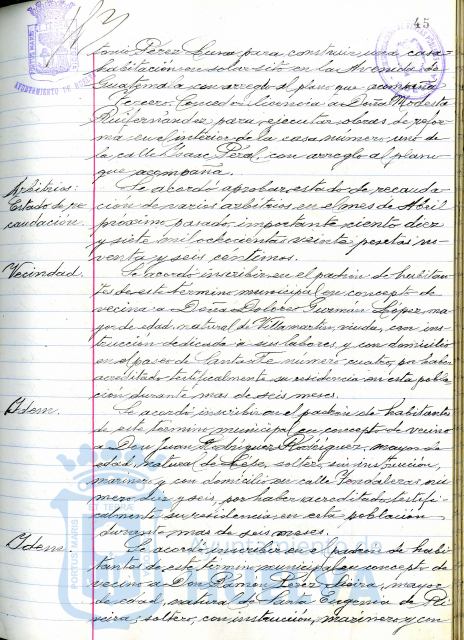 45
tonio Pérez Luna para construir una casa-
habitación en solar sito en la Avenida de
Guatemala con arreglo al plano que acompaña
Tercero: Conceder licencia a Doña Modesta
Ruifernández para ejecutar obras de refor-
ma en el interior de la casa número uno de
la calle Isaac Peral, con arreglo al plano
que acompaña.
Arbitrios:
Estado de re-
caudación.
Se acordó aprobar estado de recauda-
ción de varios arbitrios en el mes de Abril
próximo pasado, importante ciento diez
y siete mil ochocientas veinte pesetas no-
venta y seis céntimos.
Vecindad.
Se acordó inscribir en el padrón de habitan-
tes de este término municipal en concepto de
vecina a Doña Dolores Guzmán López, ma-
yor de edad, natural de Villamartín, viuda, con ins-
trucción dedicada a sus labores y con domicilio
en el paseo de Santa Fé número cuatro, por haber
acreditado testificalmente su residencia en esta pobla-
ción durante mas de seis meses.
Idem.
Se acordó inscribir en el padrón de habitantes
de este término municipal en concepto de vecino
a Don Juan Rodríguez Rodríguez, mayor de
edad, natural de Lepe, soltero, sin instrucción,
marinero y con domicilio en calle Vendaleras nú-
mero diez y seis, por haber acreditado testifi-
calmente su residencia en esta población
durante mas de seis meses.
Idem.
Se acordó inscribir en el padrón de habi-
tantes de este término municipal en concepto de
vecino a Don Ramón Pérez, mayor
de edad, natural de Santa Eugenia de Ri-
veira; soltero, con instrucción, marinero y con
PORTUS MARIS
ET TERRAE
Ayuntamiento de
HUELVA